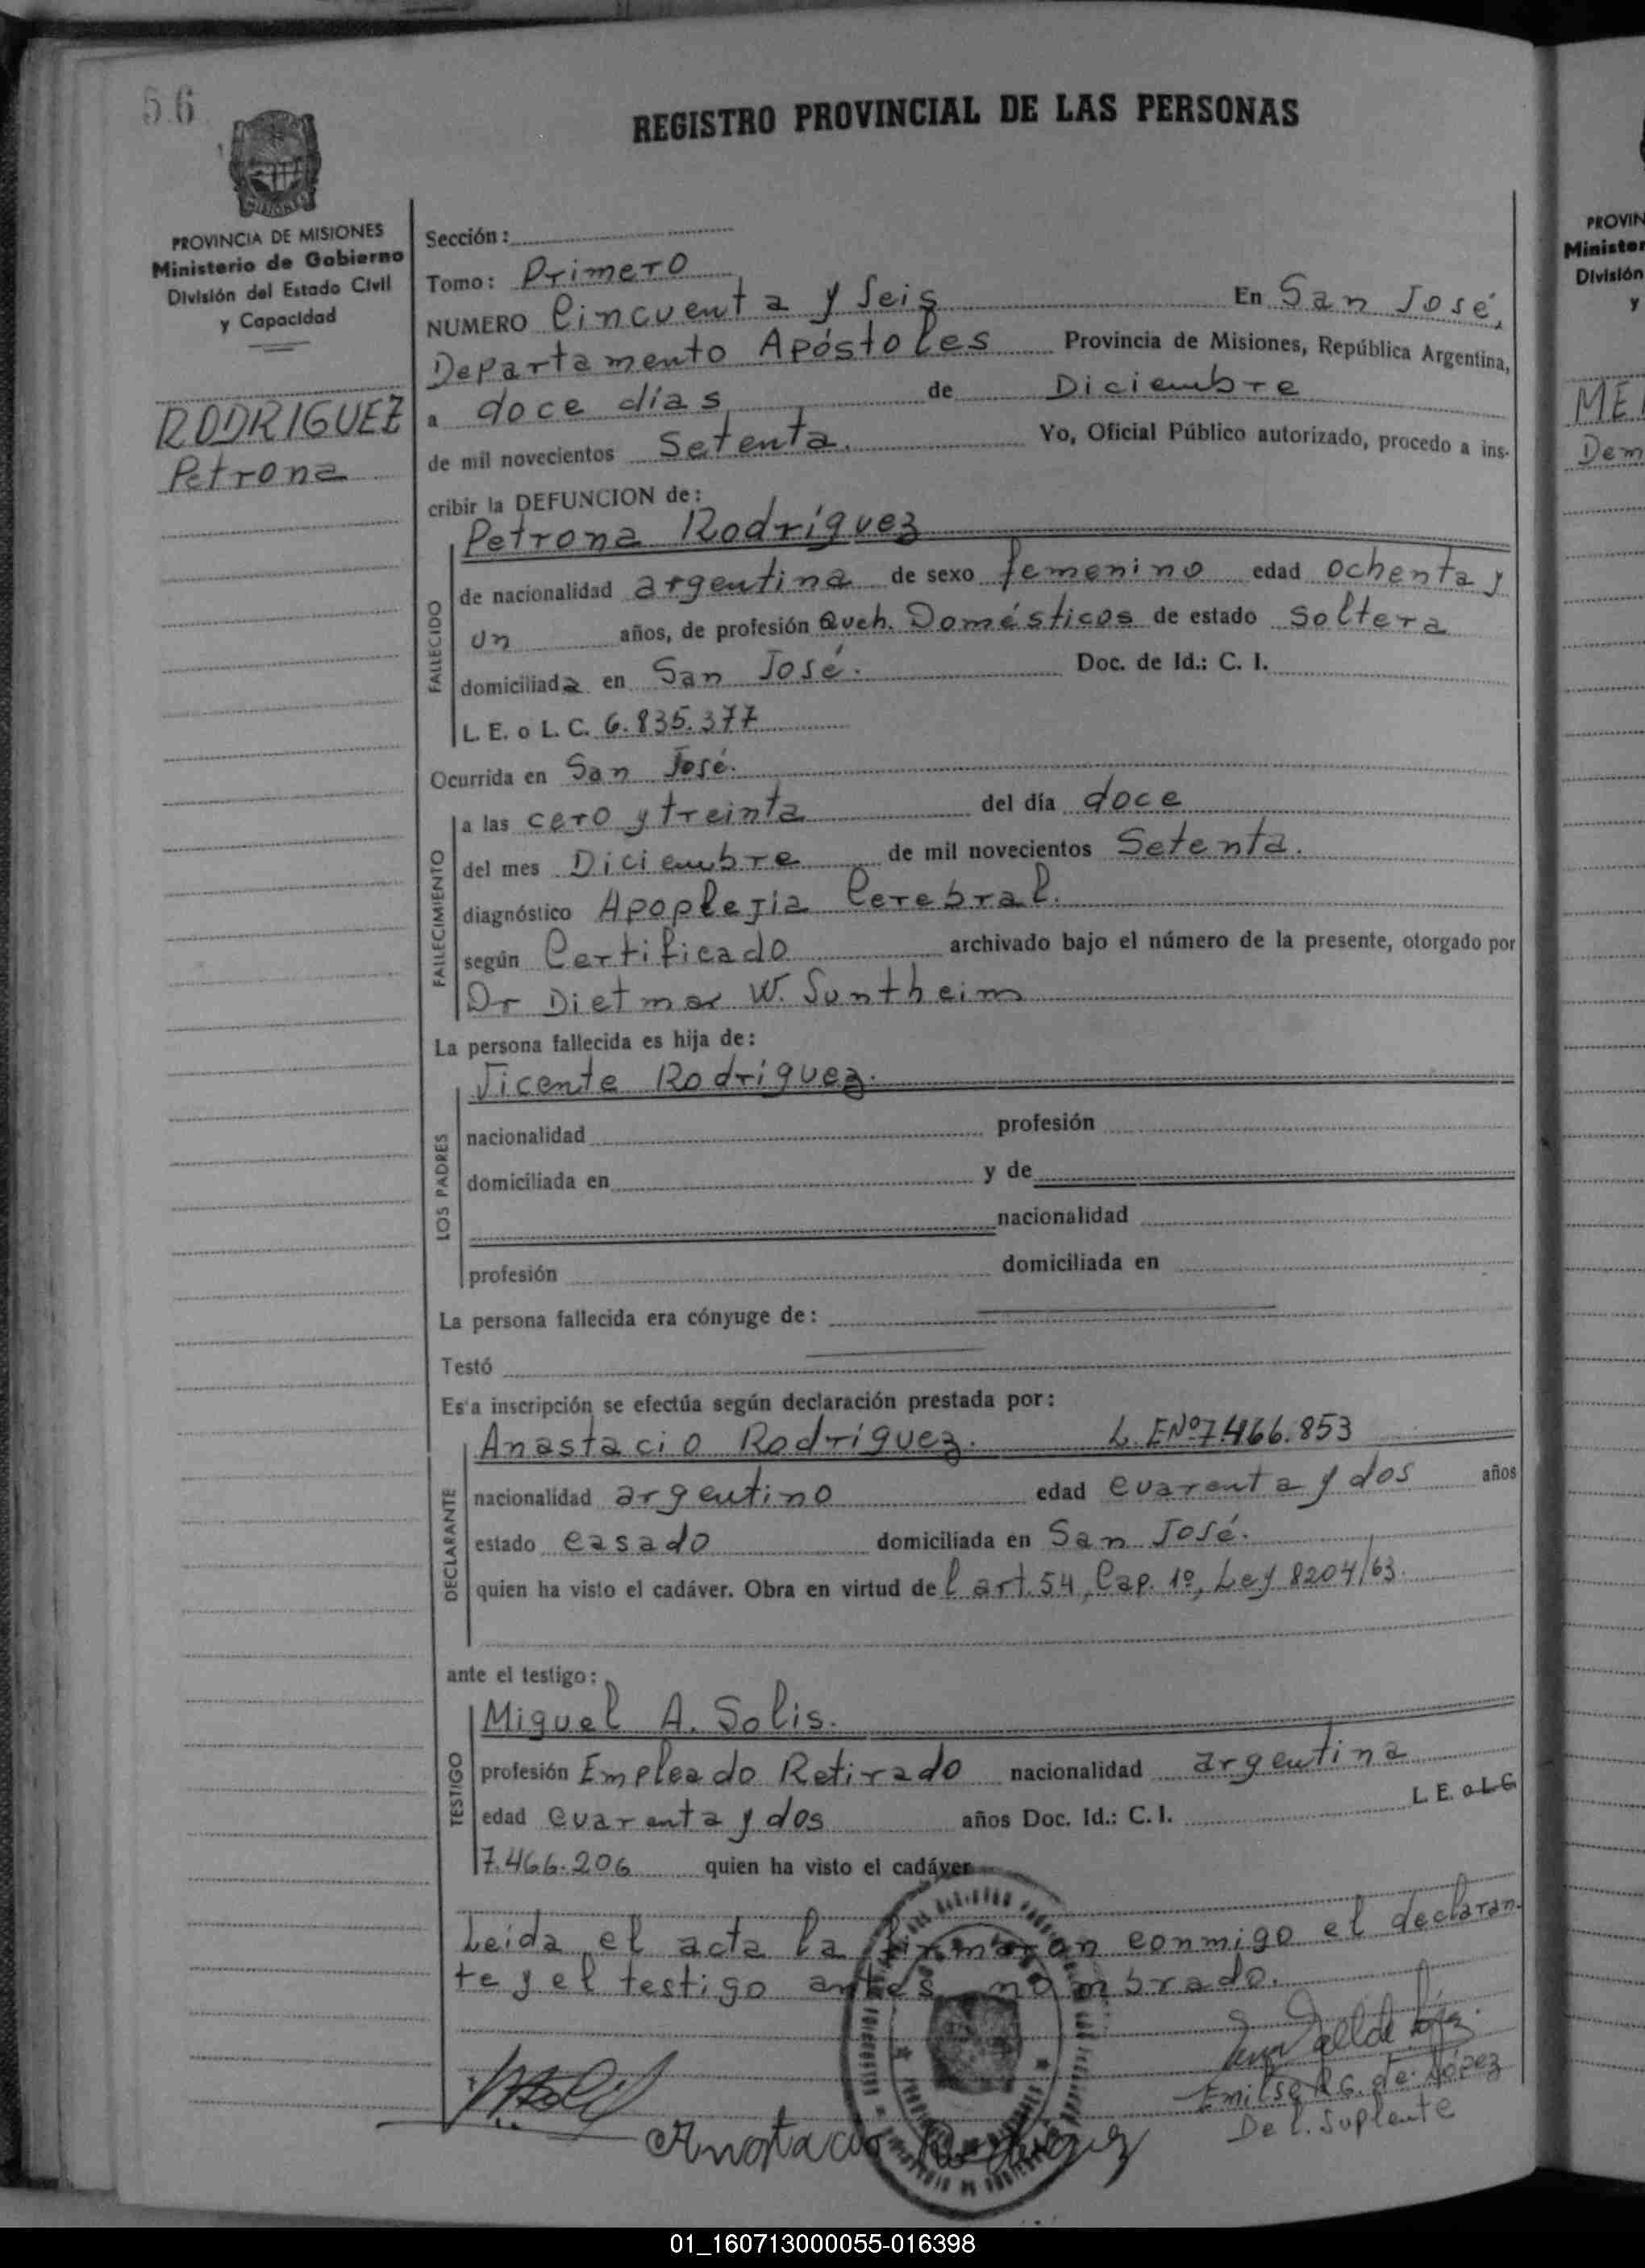 56
REGISTRO PROVINCIAL DE LAS PERSONAS
MISIONES
PROVINCIA DE MISIONES
Ministerio de Gobierno
División del Estado Civil
y Capacidad
RODRIGUEZ
Petrona
Sección:
Tomo: Primero
NUMERO Cincuenta y Seis En San José,
Departamento Apóstoles Provincia de Misiones, República Argentina,
a doce días de Diciembre
de mil novecientos Setenta. Yo, Oficial Público autorizado, procedo a ins-
cribir la DEFUNCION de:
FALLECIDO
Petrona Rodríguez
de nacionalidad argentina de sexo femenino edad ochenta y
un años, de profesión Queh. Domésticos de estado Soltera
domiciliada en San José. Doc. de Id.: C. I.
L. E. o L. C. 6.835.377
Ocurrida en San José.
FALLECIMIENTO
a las cero y treinta del día doce
del mes Diciembre de mil novecientos Setenta.
diagnóstico Apoplejia Cerebral.
según Certificado archivado bajo el número de la presente, otorgado por
Dr Dietmar W. Suntheim
La persona fallecida es hija de:
LOS PADRES
Vicente Rodríguez.
nacionalidad profesión
domiciliada en y de
nacionalidad
profesión domiciliada en
La persona fallecida era cónyuge de:
Testó
Es'a inscripción se efectúa según declaración prestada por:
DECLARANTE
Anastacio Rodríguez. L. E Nº 7.466.853
nacionalidad argentino edad cuarenta y dos años
estado casado domiciliada en San José.
quien ha visto el cadáver. Obra en virtud del art. 54, Cap. 1º, Ley 8204/63.
ante el testigo:
TESTIGO
Miguel A. Solis.
profesión Empleado Retirado nacionalidad argentina
edad cuarenta y dos años Doc. Id.: C. I. L. E. o L C
7.466.206 quien ha visto el cadáver
Leída el acta la firmaron conmigo el declaran-
te y el testigo antes nombrado.
Anastacio Rodriguez
de López
Del. Suplente
PROVIN
Minister
División
y
ME
Dem
01_160713000055-016398